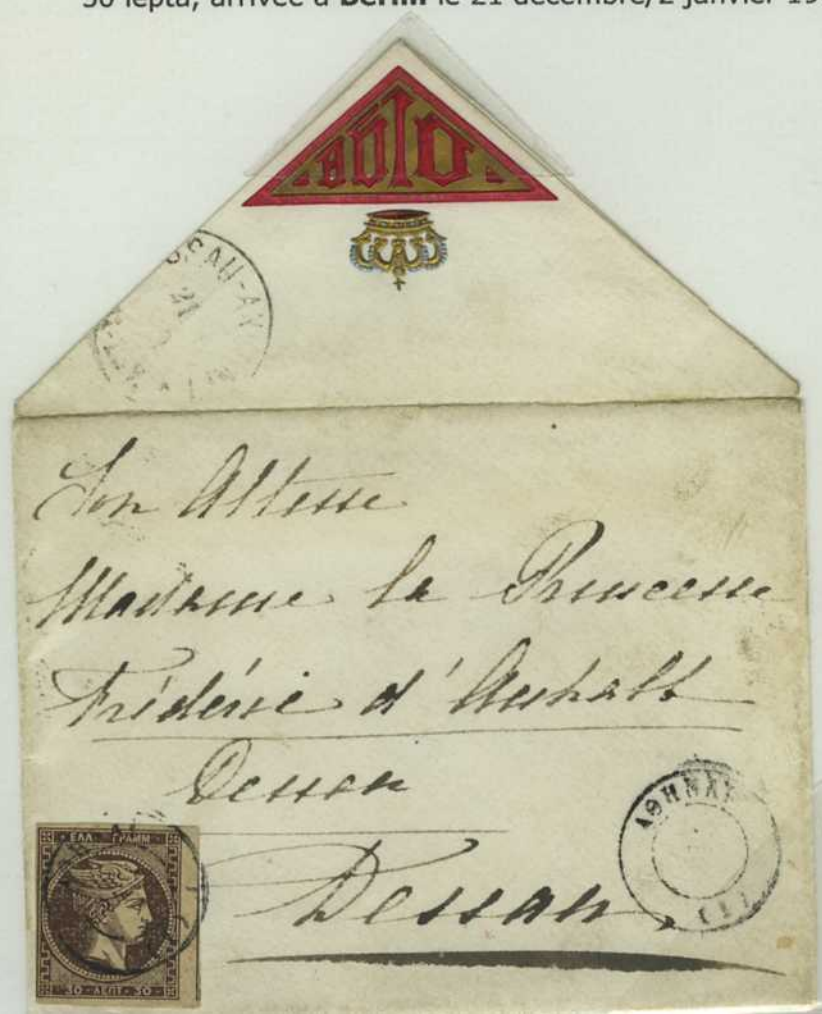 30 lepta, arrivée à Berlin le 21 décembre/2 janvier 19
21
Son Altesse
Madame la Princesse
Frédéric d'Anhalt
Dessau
Dessau,
ΑΘΗΝΑΙ
ΕΛΛ. ΓΡΑΜΜ
30 · ΛΕΠΤ · 30